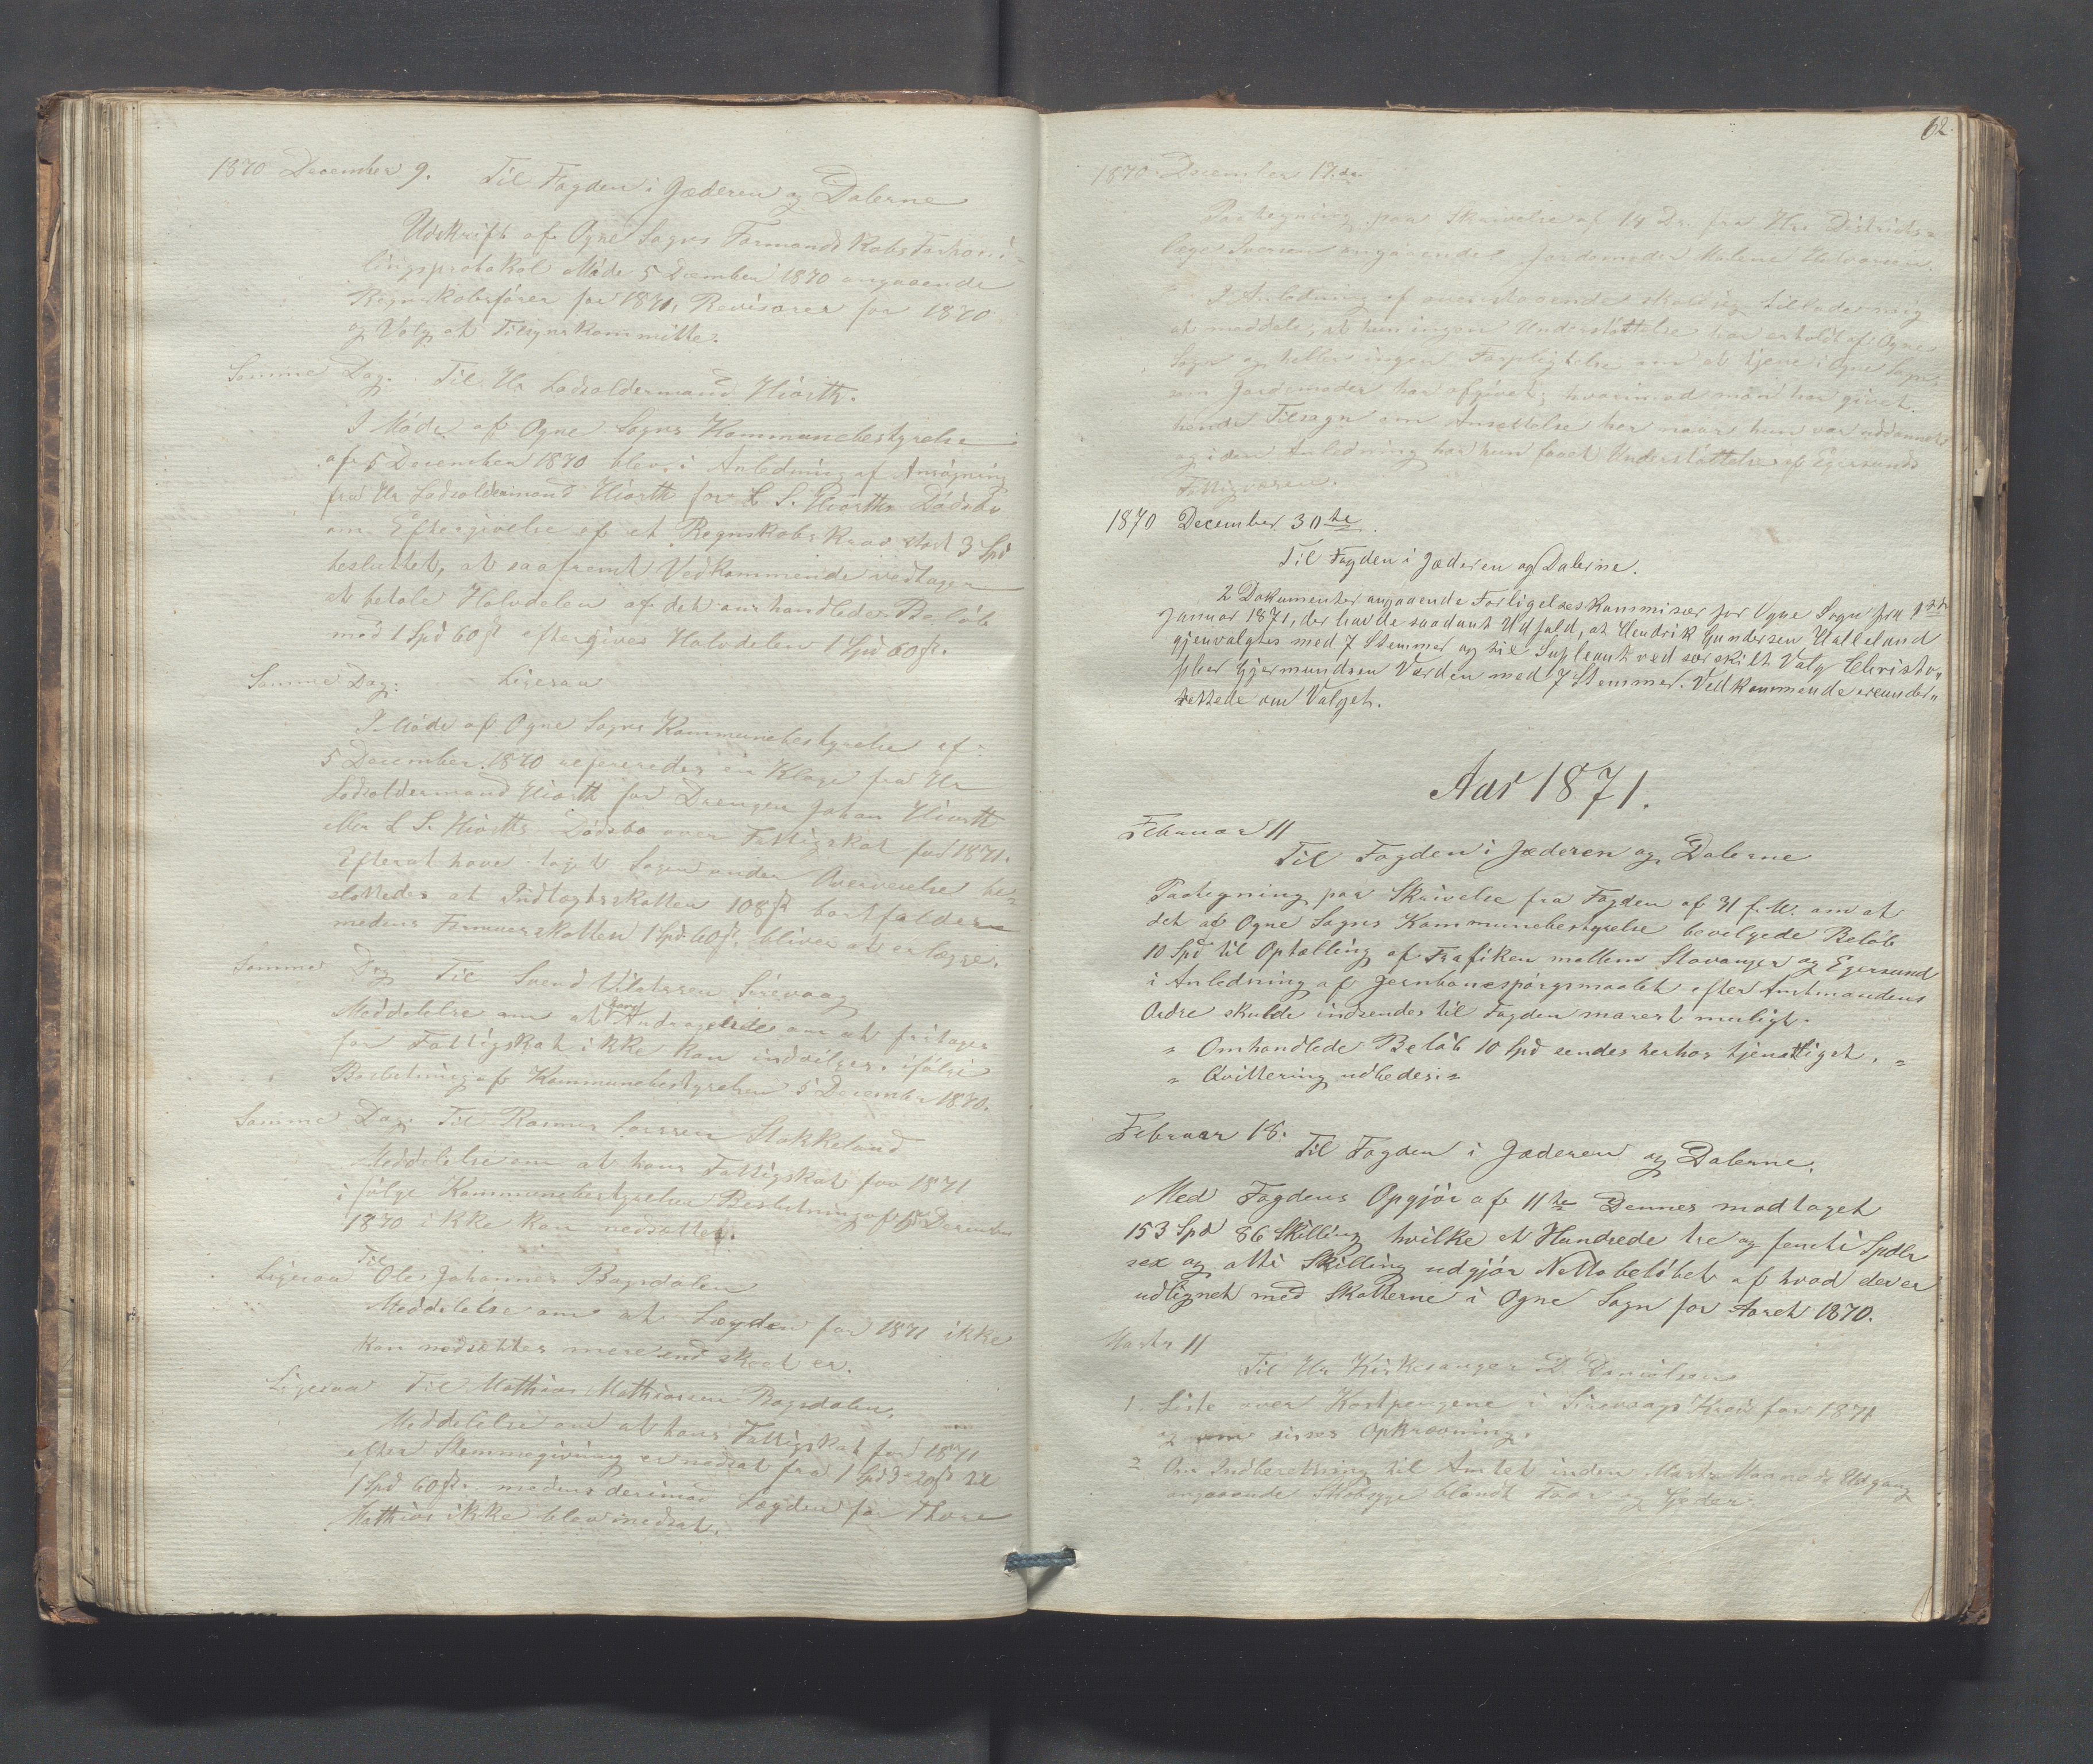 1870 December 9. Til Fogden i Jæderen og Dalerne
Udskrift af Ogne Sogns Formandskabs Forhand-
lingsprotokol Møde 5 December 1870 angaaende
Regnskabsfører for 1871, Revisorer for 1870
og Valg at Tilsynskommitte.
Samme Dag. Til Hr Lodsoldermand Hiorth.
I Møde af Ogne Sogns Kommunebestyrelse
af 5 December 1870 blev i Anledning af Ansøgning
fra Hr Lodsoldermand Hiorth for L S. Hiorths Dødsbo
om Eftergivelse af et Regnskabs Krav stort 3 Spd
besluttet, at saafremt Vedkommende vedtager
at betale Halvdelen af det omhandlede Beløb
med 1 Spd 60 ß eftergives Halvdelen 1 Spd 60 ß.
Samme Dag: Ligesaa
I Møde af Ogne Sogns Kommunebestyrelse af
5 December 1870 refereredes en Klage fra Hr
Lodsoldermand Hiorth for Drengen Johan Hiorth
eller L S. Hiorths Dødsbo over Fattigskat for 1871.
Efterat have taget Sagen under Overveielse be-
sluttedes at Indtægtsskatten 108 ß bortfalder
medens Formuesskatten 1 Spd 60 ß. bliver at erlægge.
Samme Dag Til Svend Sirevaag
Meddelelse om at hans Andragende om at fritages
for Fattigskat ikke kan indvilges, ifølge
Beslutning af Kommunebestyrelsen 5 Decemb. 1870.
Samme Dag. Til Rasmus Larsen Stokkeland
Meddelelse om at hans Fattigskat for 1871
i følge Kommunebestyrelsens Beslutning af 5 December
1870 ikke kan nedsættes.
Ligesaa Til Ole Johannes Bogsdalen
Meddelelse om at Lægden for 1871 ikke
kan nedsættes mere end skeet er.
Ligesaa Til Mathias Mathiassen Bogsdalen,
Meddelelse om at hans Fattigskat for 1871
efter Stemmegivning er nedsat fra 1 Spd 20 ß til
1 Spd 60 ß. medens derimod Lægden for Thore
Mathias ikke blev nedsat.
62.
1870. December 17. de
Paategning paa Skrivelse af 14 Ds. fra Hr. Districts-
læge Iversen angaaende Jordemoder Malene Halvorsen.
I Anledning af ovenstaaende skal jeg tillade mig
at meddele, at hun ingen Understøttelse har erholdt af Ogne
Sogn og heller ingen Forpligtelse om at tjene i Ogne Sogn
som Jordemoder har afgivet; hvorimod man har givet
hende Tilsagn om Ansettelse her naar hun var uddannet
og i den Anledning har hun faaet Understøttelse af Egersunds
Fattigvæsen.
1870 December 30te
Til Fogden i Jæderen og Dalerne.
2 Dokumenter angaaende Forligelseskommisær for Ogne Sogn fra 1ste
Januar 1871, der havde saadant Udfald, at Hendrik Gundersen Halleland
gjenvalgtes med 7 Stemmer og til Supleant ved særskilt Valg Christo„
pher Gjermundsen Varden med 7 Stemmer. Vedkommende ere under„
rettede om Valget.
Aar 1871.
Februar 11
Til Fogden i Jæderen og Dalerne
Paategning paa Skrivelse fra Fogden af 31 f. M. om at
det af Ogne Sogns Kommunebestyrelse bevilgede Beløb
10 Spd til Optælling af Trafiken mellem Stavanger og Egersund
i Anledning af Jernbanespørgsmaalet efter Amtmandens
Ordre skulde indsendes til Fogden snarest muligt.
" Omhandlede Beløb 10 Spd sendes herhos tjenstligst. "
" Qvittering udbedes. "
Februar 18.
Til Fogden i Jæderen og Dalerne.
Med Fogdens Opgjør af 11te Dennes modtaget
153 Spd 86 Skilling hvilke et Hundrede tre og femti Spdlr
sex og otti Skilling udgjør Nettobeløbet af hvad der er
udlignet med Skatterne i Ogne Sogn for Aaret 1870.
Marts 11
Til Hr Kirkesanger D Danielsen
1. Liste over Kostpengene i Sirevaags Kreds for 1871
og om disses Opkrævning.
2 Om Indberetning til Amtet inden Marts Maaneds Udgang
angaaende Skabsyge blandt Faar og Gjeder.